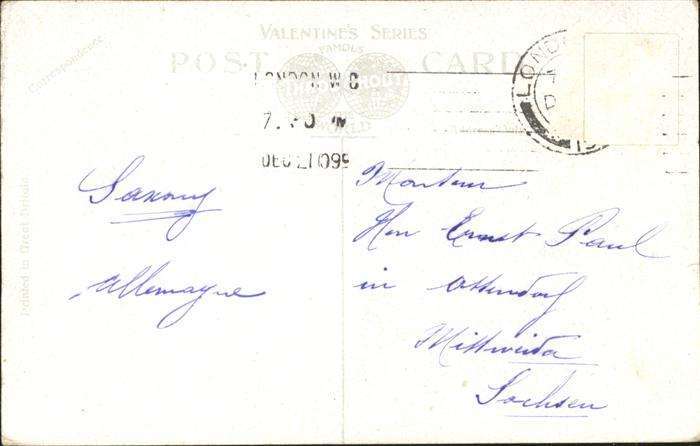 VALENTINE'S SERIES
FAMOUS
POST CARD
Correspondence
WORLD
LONDON. W C
DEC 21 09
LONDON
Printed in Great Britain
Saxony
Allemagne
Monsieur
Herr Ernst Paul
in Ottendorf
Mittweida
Sachsen